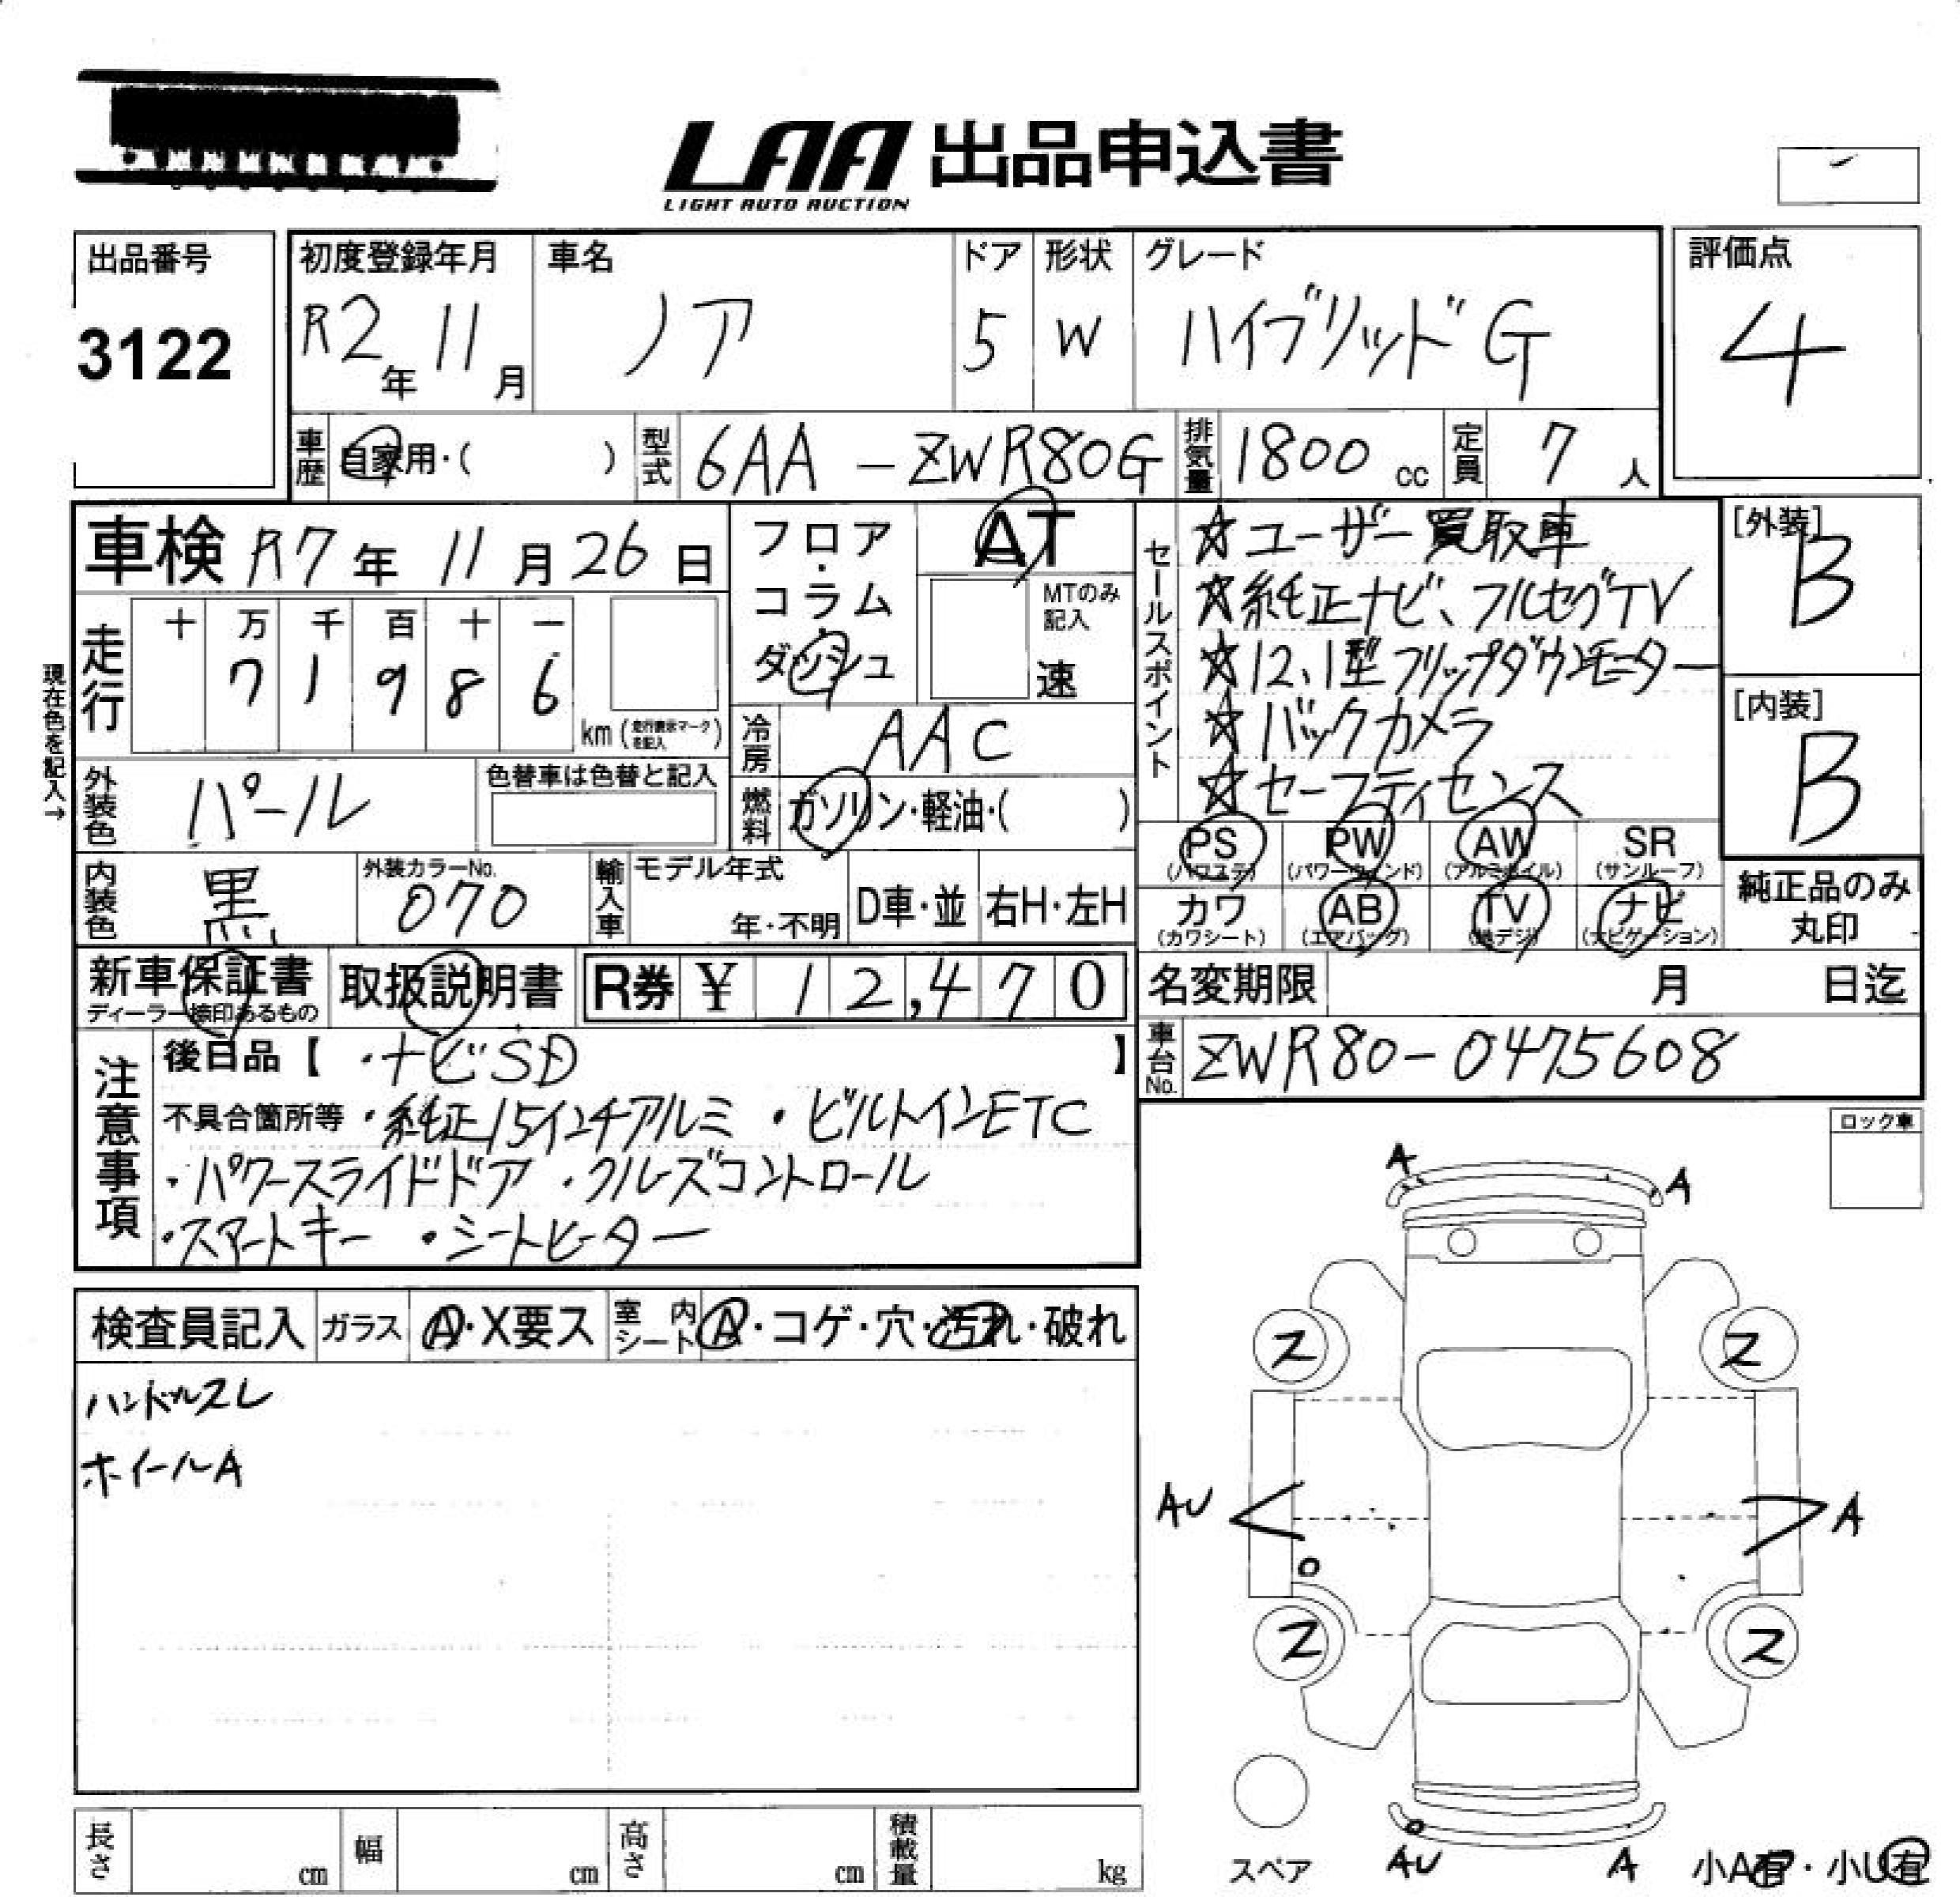 LAA 出品申込書
LIGHT AUTO AUCTION
出品番号
3122
初度登録年月
R2年 11月
車名
ノア
ドア
5
形状
W
グレード
ハイブリッド G
評価点
4
車歴
自家用・( )
型式
6AA - ZWR80G
排気量
1800 cc
定員
7 人
車検 R7年 11月 26日
フロア・コラム・ダッシュ
AT
MTのみ記入
速
現在色を記入→
走行
十 万 千 百 十 一
7 1 9 8 6
km (走行表示マークを記入)
冷房
AAC
外装色
パール
色替車は色替と記入
燃料
ガソリン・軽油・( )
内装色
黒
外装カラーNo.
070
輸入車
モデル年式
年・不明
D車・並
右H・左H
セールスポイント
☆ユーザー買取車
☆純正ナビ、フルセグTV
☆12.1型フリップダウンモーター
☆バックカメラ
☆セーフティセンス
[外装]
B
[内装]
B
PS (パワステ)
PW (パワーウィンド)
AW (アルミホイル)
SR (サンルーフ)
カワ (カワシート)
AB (エアバッグ)
TV (地デジ)
ナビ (ナビゲーション)
純正品のみ丸印
新車保証書
ディーラー捺印あるもの
取扱説明書
R券 ¥ 12,470
名変期限 月 日迄
車台No.
ZWR80-0475608
注意事項
後日品【 ・ナビSD 】
不具合箇所等 ・純正15インチアルミ ・ビルトインETC
・パワースライドドア ・クルーズコントロール
・スマートキー ・シートヒーター
ロック車
検査員記入
ガラス
A・X要ス
室内シート
A・コゲ・穴・汚れ・破れ
ハンドルスレ
ホイールA
A
A
ス
ス
AU
A
ス
ス
スペア
AU
A
小A有・小U有
長さ cm
幅 cm
高さ cm
積載量 kg